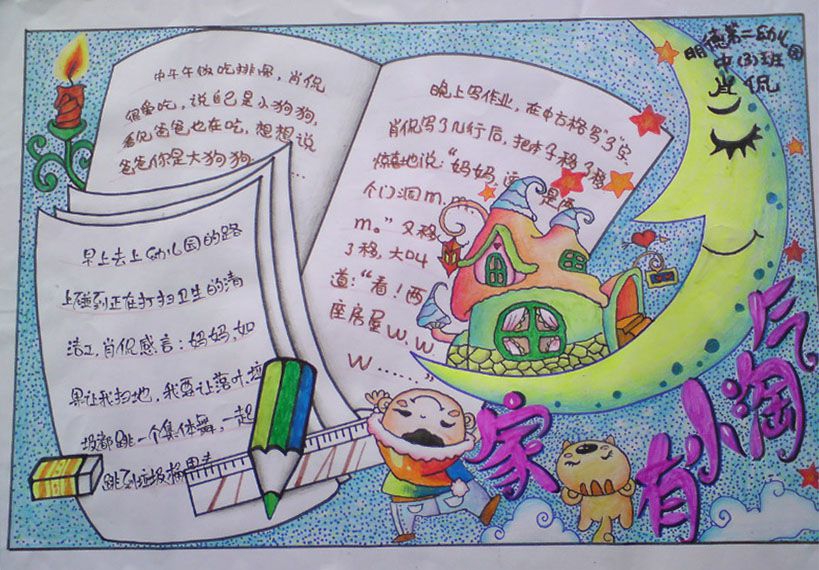 明德第二幼儿园
中(3)班
肖侃
中午午饭吃排骨，肖侃
很爱吃，说自己是小狗狗，
看见爸爸也在吃，想想说
爸爸你是大狗狗……
晚上写作业，在中方格写"3"字，
肖侃写了几行后，把本子移了移
惊喜地说："妈妈，这是两
个门洞m.m.
m。"又移
了移，大叫
道："看！两
座房屋W.W.
W……"
早上去上幼儿园的路
上碰到正在打扫卫生的清
洁工，肖侃感言：妈妈，如
果让我扫地，我要让落叶垃
圾都跳一个集体舞，一起
跳到垃圾桶里去
家有小淘气